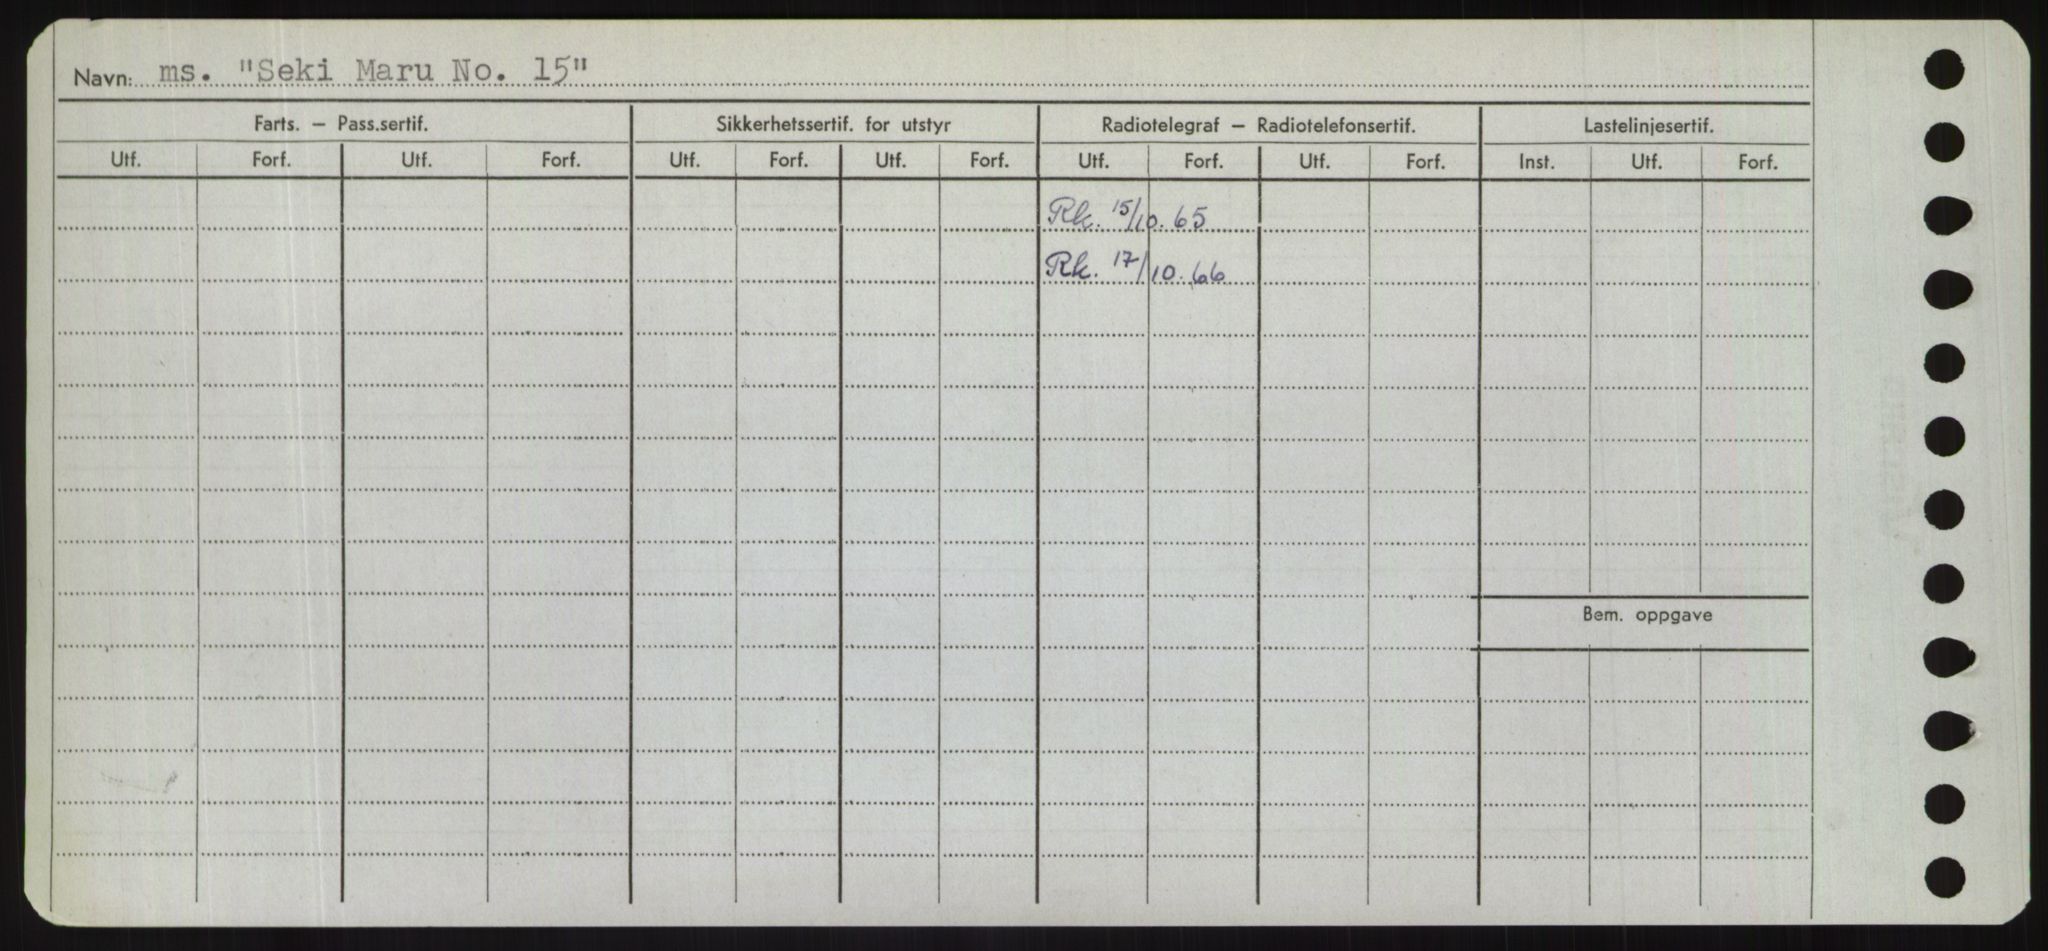 Navn: ms. "Seki Maru No. 15"
Farts. – Pass.sertif. Sikkerhetssertif. for utstyr Radiotelegraf – Radiotelefonsertif. Lastelinjesertif.
Utf. Forf. Utf. Forf. Utf. Forf. Utf. Forf. Utf. Forf. Utf. Forf. Inst. Utf. Forf.
Rk. 15/10. 65
Rk. 17/10. 66
Bem. oppgave